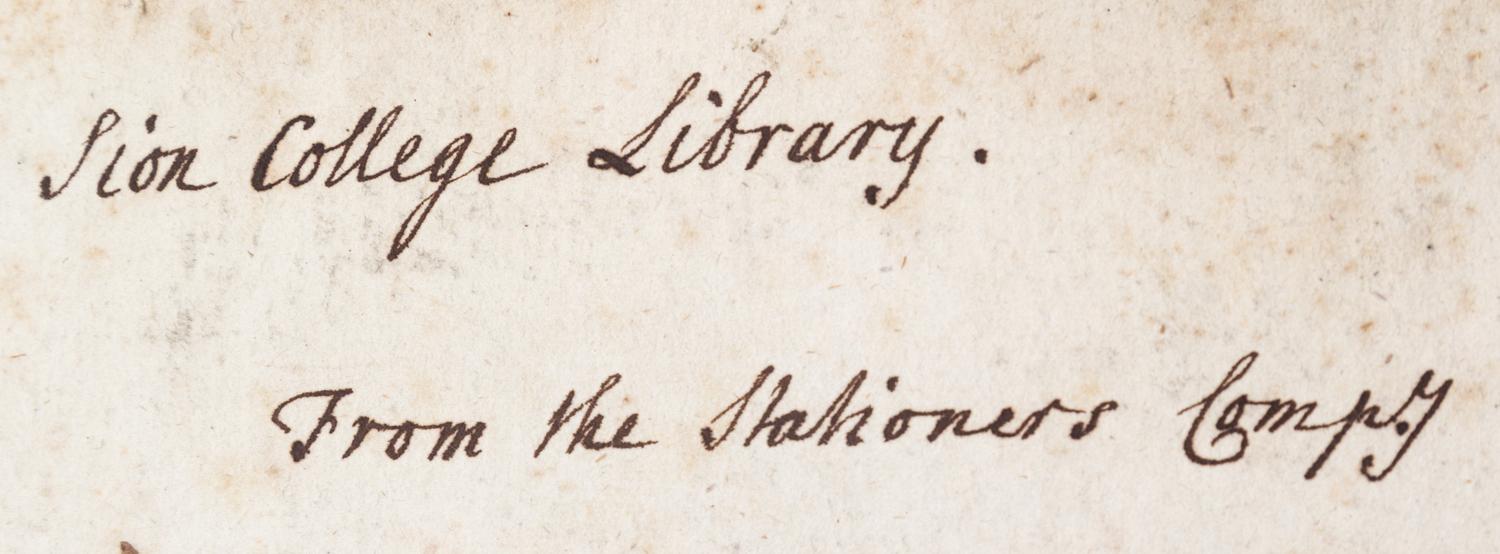 Sion College Library.
From the Stationers Compy